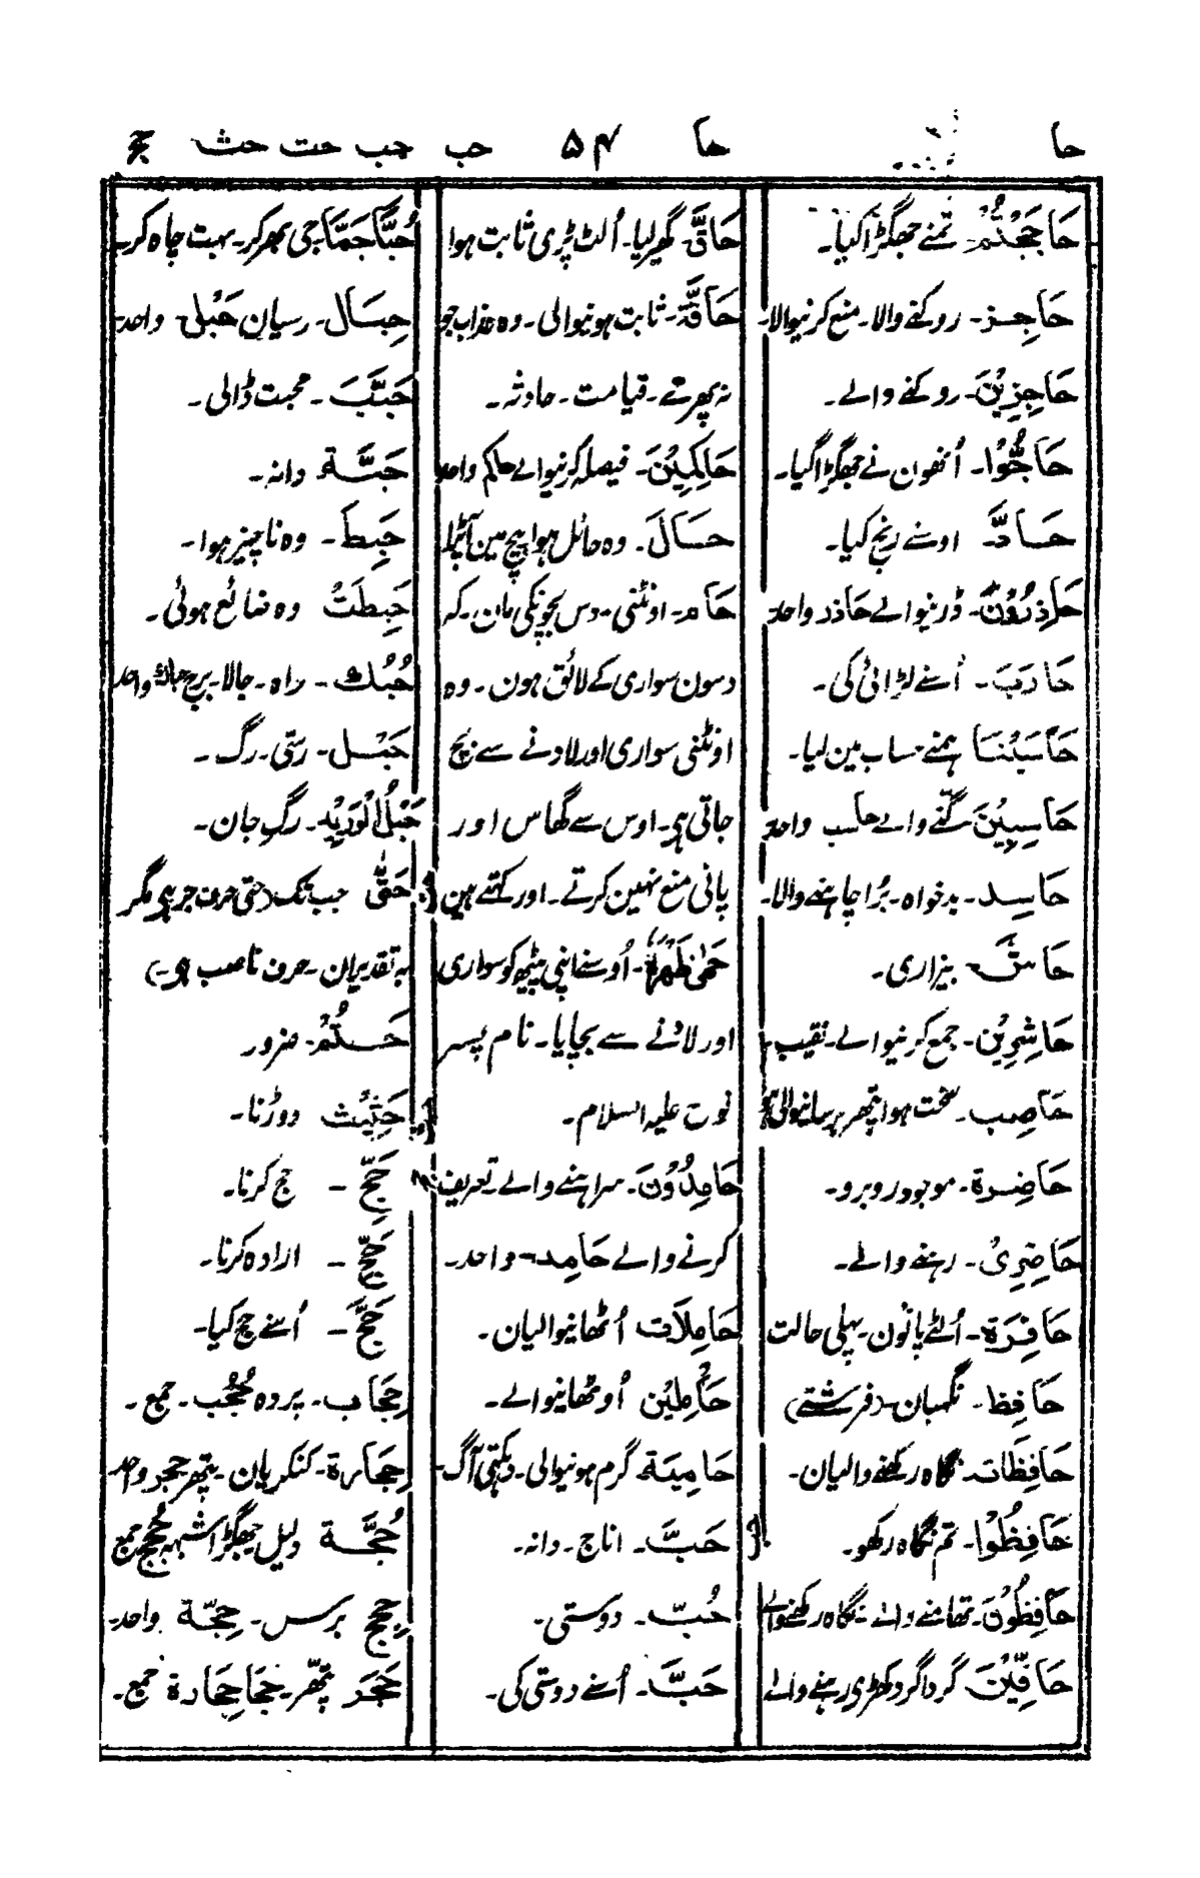 حا
حا
۵۴
حب حب حت حث حج
حَاجَجْتُمْ۔ تمنے جھگڑا کیا۔
حَاجِز۔ روکنے والا۔ منع کرنیوالا۔
حَاجِزِیْنَ۔ روکنے والے۔
حَاجُّوْا۔ اُنھون نے جھگڑا کیا۔
حَادَّ اوسنے رنج کیا۔
حَاذِرُوْنَ۔ ڈرنیوالے حَاذر واحد
حَارَبَ۔ اُسنے لڑائی کی۔
حَاسَبْنَا ہمنے حساب مین لیا۔
حَاسِبِیْنَ گننے والے حاسب واحد
حَاسِد۔ بدخواہ۔ بُرا چاہنے والا۔
حَاشَ۔ بیزاری۔
حَاشِرِیْن۔ جمع کرنیوالے۔ نقیب۔
حَاصِب۔ سخت ہوا پتھر برسانیوالی
حَاضِرَة۔ موجود روبرو۔
حَاضِرِیْ۔ رہنے والے۔
حَافِرَة۔ اُلٹے پانون۔ پہلی حالت
حَافِظ۔ نگہبان۔ (فرشتے)
حَافِظَات۔ نگاہ رکھنے والیان۔
حَافِظُوْا۔ تم نگاہ رکھو۔
حَافِظُوْنَ۔ تھامنے والے۔ نگاہ رکھنے والے
حَافِّیْنَ گرداگرد کھڑی رہنے والے
حَاقَّ۔ گھیر لیا۔ اُلٹ پڑی ثابت ہوا
حَاقَّة۔ ثابت ہونیوالی۔ وہ عذاب جو
نہ پھرے۔ قیامت۔ حادثہ۔
حَاکِمِیْنَ۔ فیصلہ کرنیوالے حاکم واحد
حَالَ۔ وہ حائل ہوا بیچ مین آپڑا
حَام۔ اونٹنی۔ دس بچونکی مان۔ کہ
دسون سواری کے لائق ہون۔ وہ
اونٹنی سواری اور لادنے سے بچ
جاتی ہی۔ اوس سے گھاس اور
پانی منع نہین کرتے۔ اور کہتے ہین
حَمٰی ظَهْرَهٗ۔ اُوسنے اپنی پیٹھ کو سواری
اور لادنے سے بچایا۔ نام پسر
نوح علیہ السلام۔
حَامِدُوْنَ۔ سراہنے والے۔ تعریف
کرنے والے حَامِد۔ واحد۔
حَامِلَات اُٹھانیوالیان۔
حَامِلِیْن اُوٹھانیوالے۔
حَامِیَة گرم ہونیوالی۔ دہکتی آگ۔
حَبَّ۔ اناج۔ دانہ۔
حُبّ۔ دوستی۔
حَبَّ۔ اُسنے دوستی کی۔
حُبًّا جَمًّا جی بھر کر۔ بہت چاہ کر۔
حِبَال۔ رسیان حَبْل۔ واحد۔
حَبَّبَ۔ محبت ڈالی۔
حَبَّة دانہ۔
حَبِطَ۔ وہ ناچیز ہوا۔
حَبِطَتْ وہ ضائع ہوئی۔
حُبُك۔ راہ۔ جالا۔ برج حباك واحد
حَبْل۔ رسّی۔ رگ۔
حَبْلُ الْوَرِیْدِ۔ رگِ جان۔
حَتّٰی جب تک (حتی حرف جر ہی مگر
بہ تقدیر ان۔ حرف ناصب ہی۔)
حَتْمُ۔ ضرور
حَثِیْث دوڑنا۔
حَجّ۔ حج کرنا۔
حِجّ۔ ارادہ کرنا۔
حَجَّ۔ اُسنے حج کیا۔
حِجَاب۔ پردہ حُجُب۔ جمع۔
حِجَارة۔ کنکریان۔ پتھر حجر واحد
حُجَّة دلیل جھگڑا شبہہ حُجَج جمع
حِجَج برس۔ حِجّة واحد۔
حَجَر پتھر۔ حِجَارة جمع۔